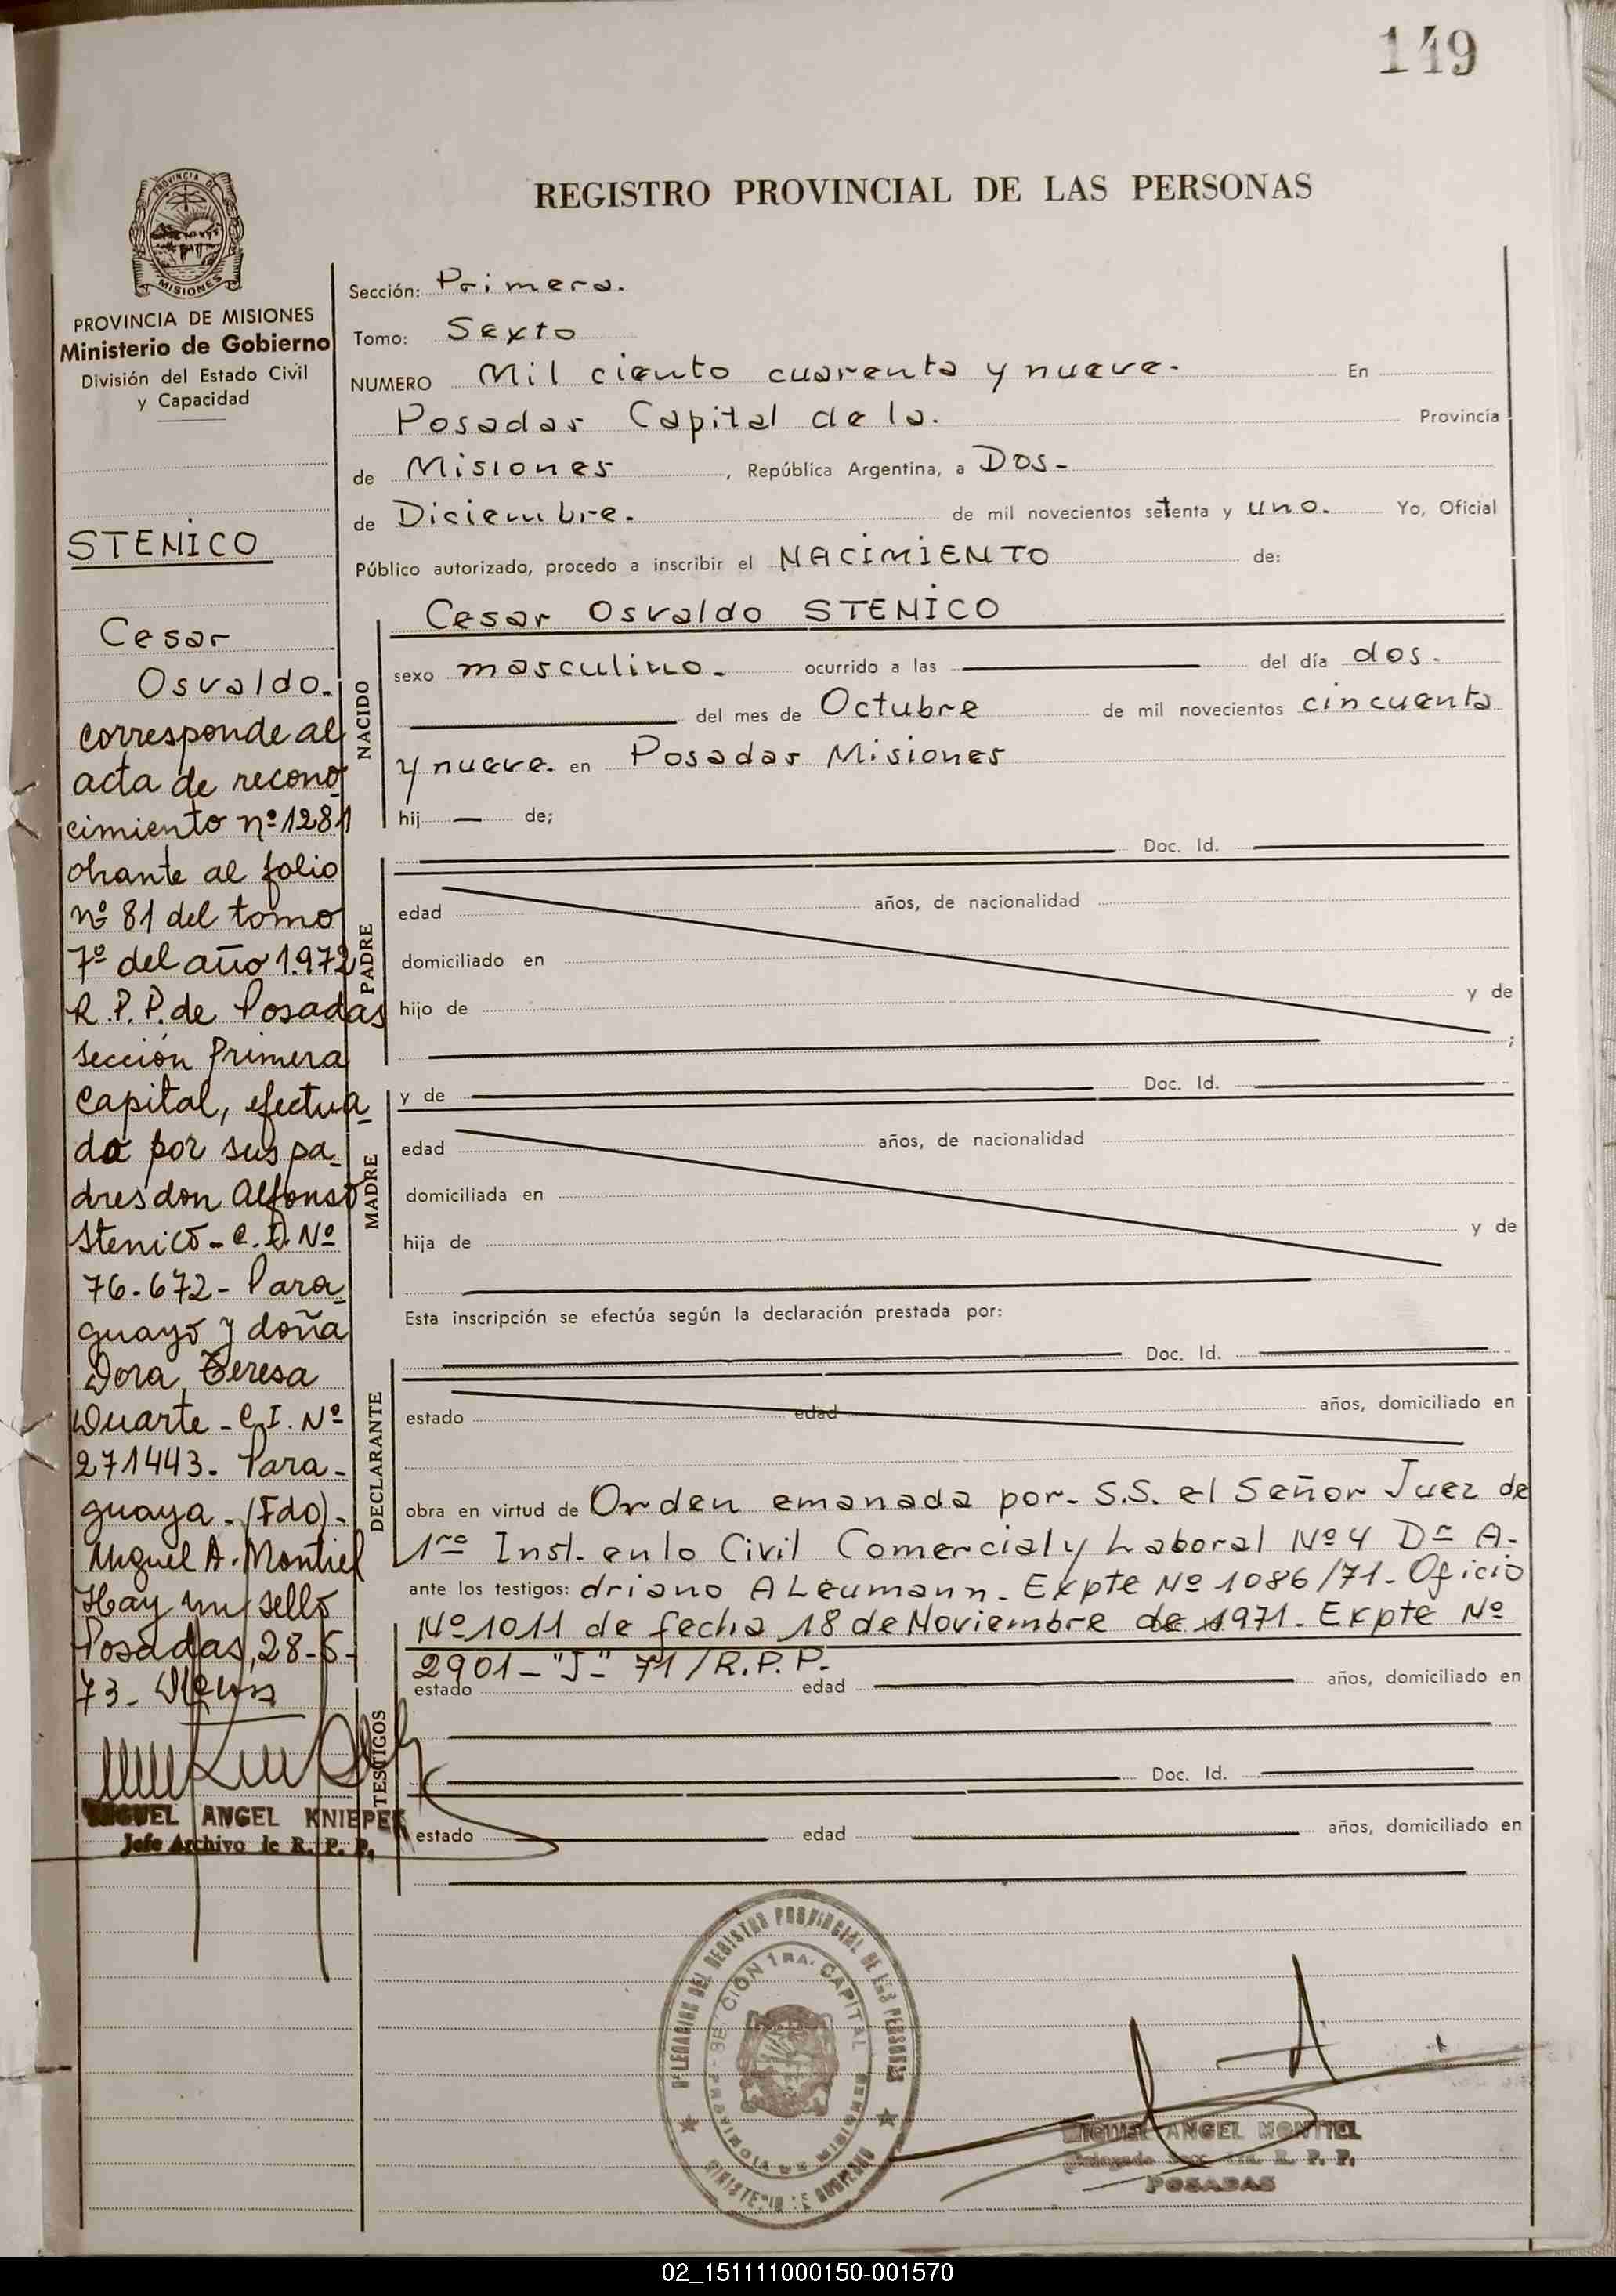 149
REGISTRO PROVINCIAL DE LAS PERSONAS
PROVINCIA DE
MISIONES
PROVINCIA DE MISIONES
Ministerio de Gobierno
División del Estado Civil
y Capacidad
STENICO
Cesar
Osvaldo.
corresponde al
acta de recono
cimiento nº 1281
obrante al folio
nº 81 del tomo
7º del año 1.972
R.P.P. de Posadas
sección Primera
Capital, efectua-
do por sus pa-
dres don Alfonso
Stenico - C.I. Nº
76.672 - Para-
guayo y doña
Dora Teresa
Duarte - C.I. Nº
271443. Para-
guaya - (Fdo) -
Miguel A. Montiel
Hay un sello
Posadas, 28-5-
73 -
MIGUEL ANGEL KNIEPER
Jefe Archivo de R. P. P.
Sección: Primera.
Tomo: Sexto
NUMERO Mil ciento cuarenta y nueve. En
Posadas Capital de la. Provincia
de Misiones, República Argentina, a Dos-
de Diciembre. de mil novecientos setenta y uno. Yo, Oficial
Público autorizado, procedo a inscribir el NACIMIENTO de:
NACIDO
Cesar Osvaldo STENICO
sexo masculino. ocurrido a las del día dos.
del mes de Octubre de mil novecientos cincuenta
y nueve. en Posadas Misiones
hij de;
Doc. Id.
PADRE
edad años, de nacionalidad
domiciliado en
hijo de y de
;
MADRE
y de Doc. Id.
edad años, de nacionalidad
domiciliada en
hija de y de
Esta inscripción se efectúa según la declaración prestada por:
Doc. Id.
DECLARANTE
estado edad años, domiciliado en
obra en virtud de Orden emanada por. S.S. el Señor Juez de
1ra Inst. en lo Civil Comercial y Laboral Nº 4 Dr A-
ante los testigos: driano A Leumann. Expte Nº 1086/71. Oficio
Nº 1011 de fecha 18 de Noviembre de 1971. Expte Nº
2901-"J"-71/R.P.P.
estado edad años, domiciliado en
TESTIGOS
Doc. Id.
estado edad años, domiciliado en
DELEGACION DEL REGISTRO PROVINCIAL DE LAS PERSONAS
SECCION 1RA. CAPITAL
PROVINCIA DE MISIONES
MINISTERIO DE GOBIERNO
MIGUEL ANGEL MONTIEL
Delegado R. P. P.
POSADAS
02_151111000150-001570